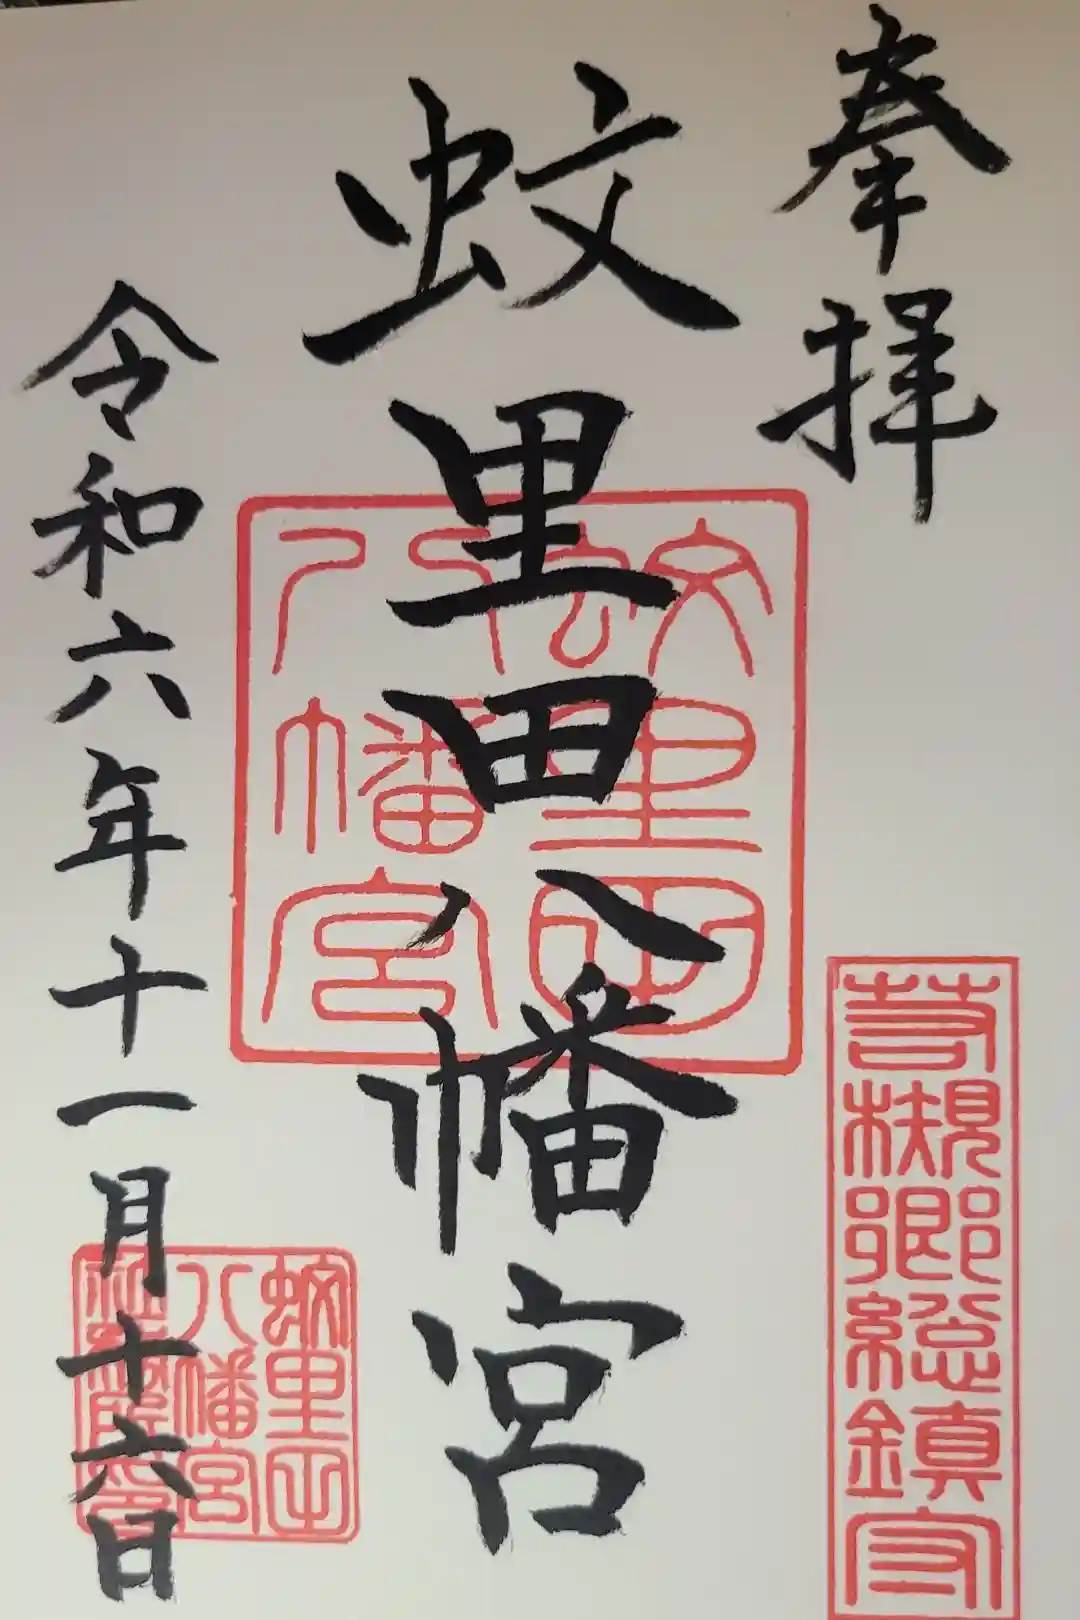 奉拝
蚊里田八幡宮
令和六年十一月十六日
蚊里田
八幡宮
蚊里田
八幡宮
若槻郷総鎮守